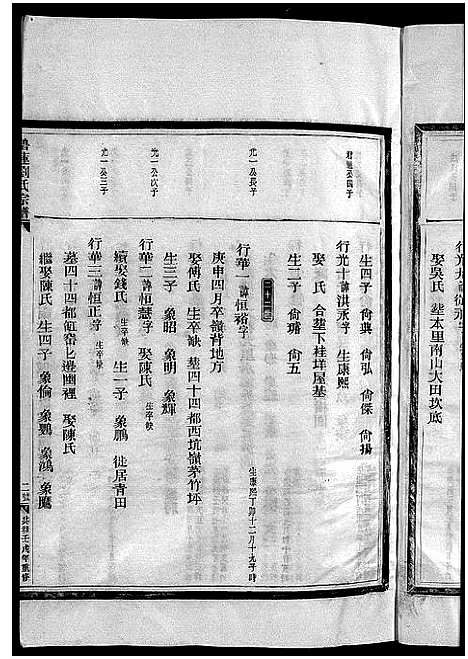 娶吳氏 塟本里南山大田坎底
生四子 尙典 尙弘 尙傑 尙揚
君 公四子
行光十諱洪永字 生康熙
娶 氏 合塟下桂垟屋基
生二子 尙璿 尙五
二十二世
光一公長子
行華一諱恒裕字 生康熙丁卯十二月十九子時
庚申四月卒嶺背地方
娶傅氏 生卒缺 塟四十四都西坑嶺茅竹坪
生三子 象昭 象明 象輝
光一公次子
行華二諱恒慧字 娶陳氏 生卒缺
續娶錢氏 生卒缺 生一子 象鵬 徙居青田
光一公三子
行華三諱恒正字 生卒缺
墓四十四都缸窰上邊幽裡 娶陳氏
繼娶陳氏 生四子 象倫 象鸚 象鴻 象鷹
劉氏宗譜